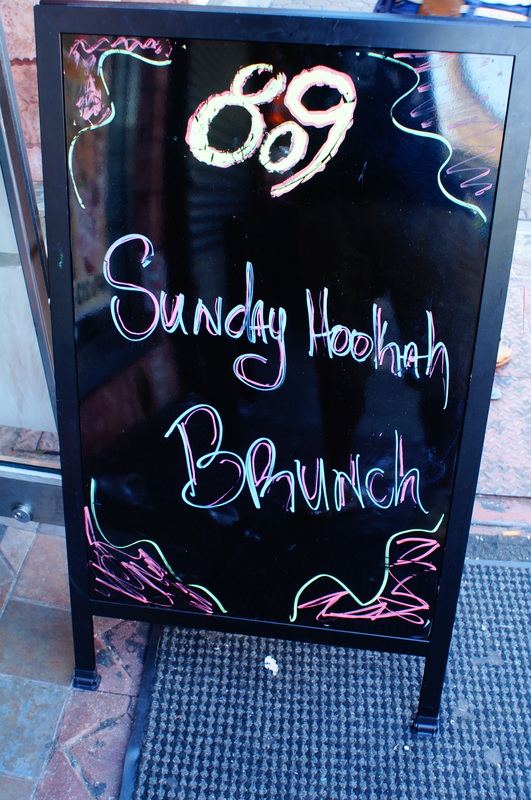 809
Sunday Hookah
Brunch